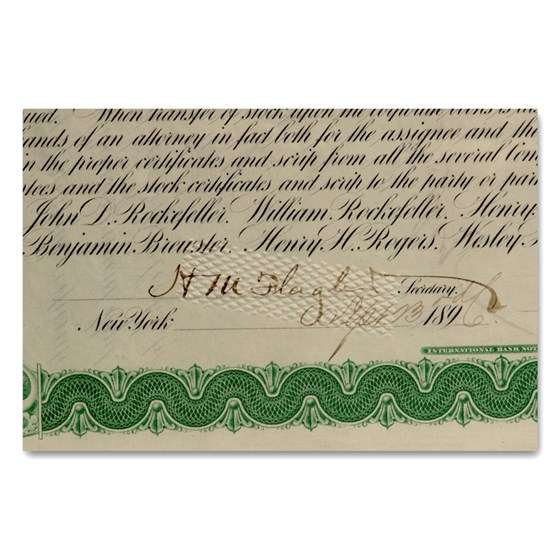 ued. When transfer of stock upon the corporate
ands of an attorney in fact both for the assignee and the
n the proper certificates and scrip from all the several
and the stock certificates and scrip to the party or
John D. Rockefeller, William Rockefeller, Henry
Benjamin Brewster, Henry H. Rogers, Wesley
H M Flagler Secretary.
New York Sept 23 1896
INTERNATIONAL BANK NOT